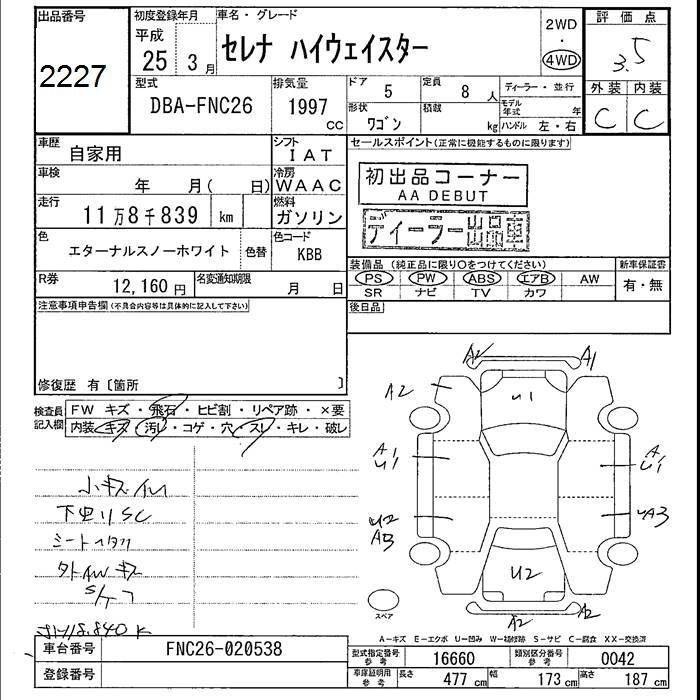 出品番号
2227
初度登録年月
平成
25年 3月
車名・グレード
セレナ ハイウェイスター
2WD
・
4WD
評価点
3.5
型式
DBA-FNC26
排気量
1997
CC
ドア
5
定員
8 人
ディーラー・並行
形状
ワゴン
積載
kg
モデル年式 年
ハンドル 左・右
外装 内装
C C
車歴
自家用
シフト
IAT
セールスポイント(正常に機能するものに限ります)
車検
年 月( 日)
冷房
WAAC
初出品コーナー
AA DEBUT
走行
11万8千839 km
燃料
ガソリン
ディーラー出品車
色
エターナルスノーホワイト
色替
色コード
KBB
装備品 (純正品に限り○をつけてください)
新車保証書
PS PW ABS エアB AW
有・無
SR ナビ TV カワ
R券
12,160 円
名変通知期限
月 日
後日品
注意事項申告欄(不具合内容等は具体的に記入して下さい)
修復歴 有〔箇所 〕
検査員記入欄
FW キズ・飛石・ヒビ割・リペア跡・×要
内装 キズ・汚レ・コゲ・穴・スレ・キレ・破レ
A2 A1
A2
U1
A1
U1
A1
U1
U2
A3
UA3
U2
A2 A2
小キズ イル
下回りSC
シートヘタリ
スペア
A-キズ E-エクボ U-凹み W-補修跡 S-サビ C-腐食 XX-交換済
車台番号
FNC26-020538
登録番号
型式指定番号
参考
16660
類別区分番号
参考
0042
車庫証明用
参考
長さ
477 cm
幅
173 cm
高さ
187 cm